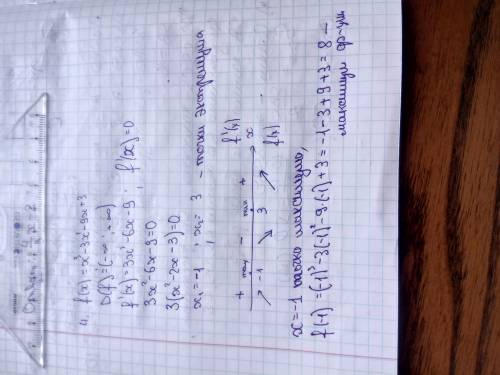 4. f(x)=x³-3x²-9x+3
D(f)=(-∞; +∞)
f'(x)=3x²-6x-9; f'(x)=0
3x²-6x-9=0
3(x²-2x-3)=0
x₁=-1, x₂=3 - точки экстремума
+ max - min + f'(x)
-1 3 x
↗ ↘ ↗ f(x)
x=-1 точка максимума,
f(-1)=(-1)³-3(-1)²-9·(-1)+3=-1-3+9+3=8 -
максимум